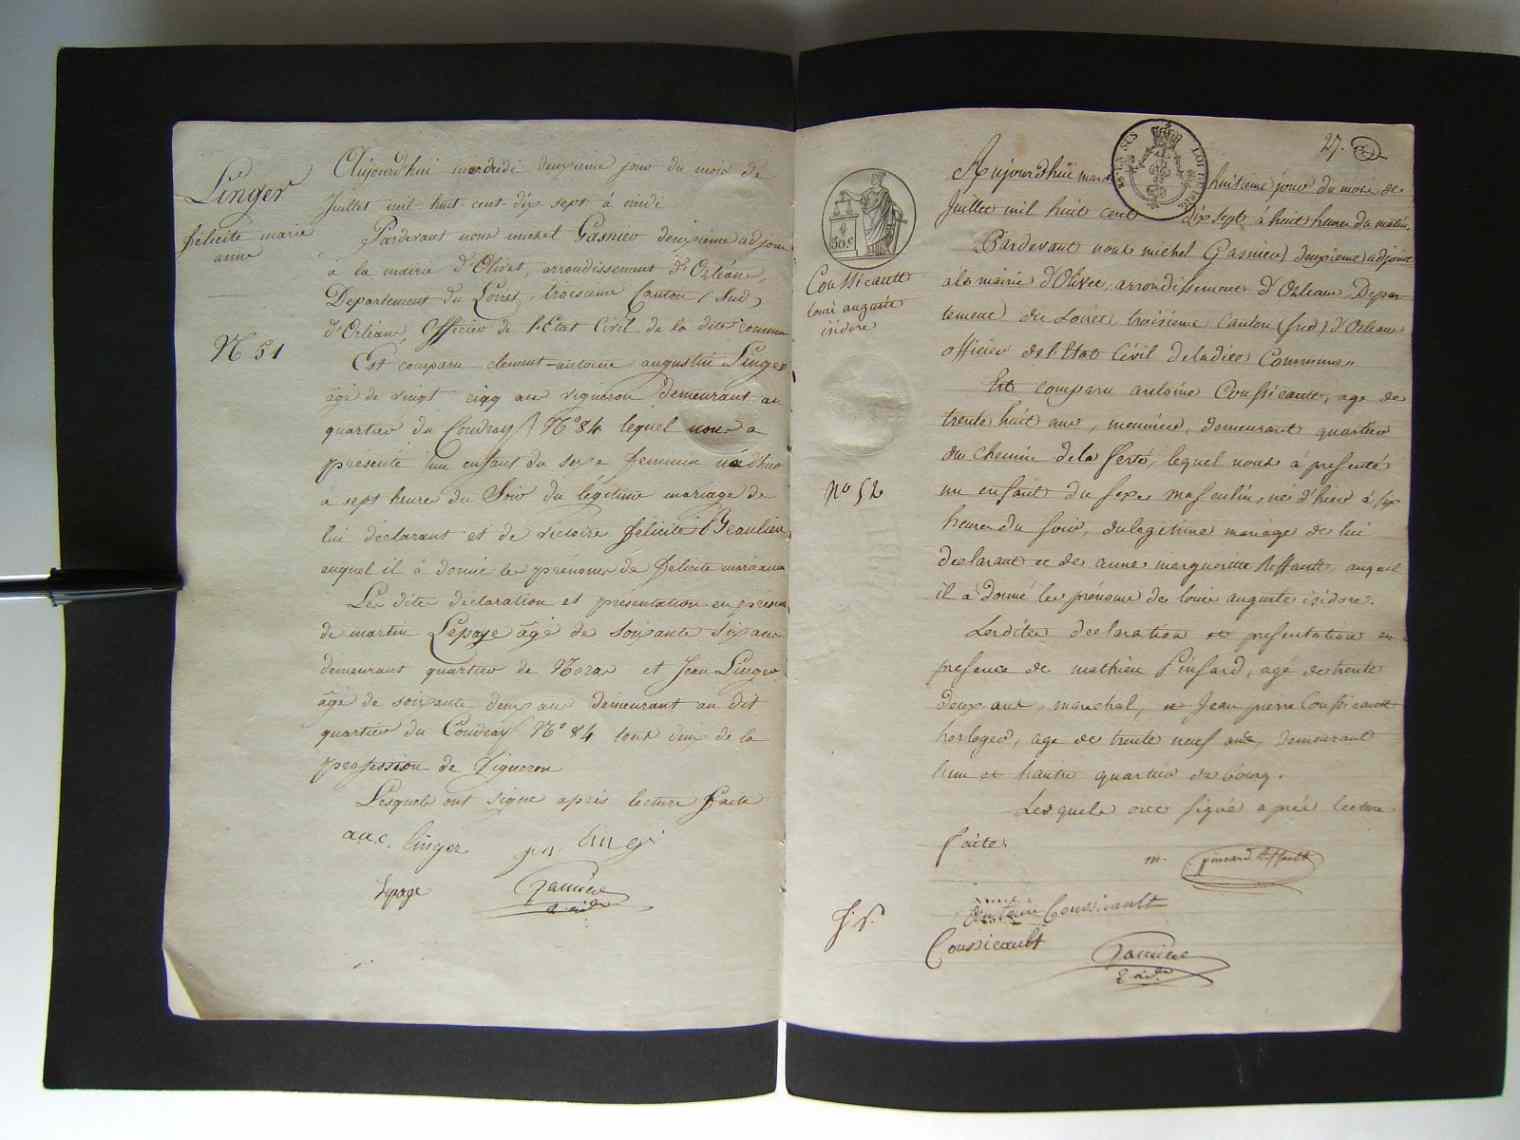 Linger
felicité marie
anne
N 51
Aujourd'hui mercredi deuxieme jour du mois de
Juillet mil huit cent dix sept à midi
Pardevant nous michel Gasnier deuxième adjoint
à la mairie d'Olivet, arrondissement d'Orléans,
Departement du Loiret, troisieme Canton (Sud)
d'Orléans, Officier de l'Etat Civil de la dite commune
Est comparu clement antoine augustin Linger
âgé de vingt cinq ans vigneron demeurant au
quartier du Coudray N° 84 lequel nous a
présenté un enfant du sexe feminin né d'hier
a sept heure du Soir du légitime mariage de
lui déclarant et de victoire félicité Beaulieu
auquel il à donné les prénoms de félicité marie anne
Les dites declaration et présentation en presence
de martin Lepage âgé de soixante six ans
demeurant quartier de et Jean Linger
âgé de soixante deux ans demeurant au dit
quartier du Coudray N° 84 tous deux de la
profession de Vigneron
Lesquels ont signé après lecture faite
a a c. linger
lepage Gasnier
2. adj.
27.
50 c
Coussicault
louis auguste
isidore
N° 52
Aujourd'hui mardi huitieme jour du mois de
Juillet mil huit cent dix sept à huit heures du matin
Pardevant nous michel Gasnier deuxieme adjoint
a la mairie d'Olivet, arrondissement d'Orleans Depar
tement du Loiret troisieme Canton (sud) d'Orleans
officier de l'Etat Civil de ladite Commune
Est comparu antoine Coussicault, age de
trente huit ans, meunier, demeurant quartier
du chemin de la ferté, lequel nous à presenté
un enfant du sexe masculin, né d'hier à six
heures du soir, du legitime mariage de lui
declarant et de anne marguerite auquel
il a donné les prénoms de louis auguste isidore.
Lesdites declaration et presentation en
presence de mathieu Pinsard, agé de trente
deux ans, marechal, et Jean pierre Coussicault
horloger, age de trente neuf ans, demeurant
l'un et l'autre quartier du bourg.
Lesquels ont signé après lecture
faite.
m. pinsard
antoine Coussicault
Coussicault Gasnier
2. adj.